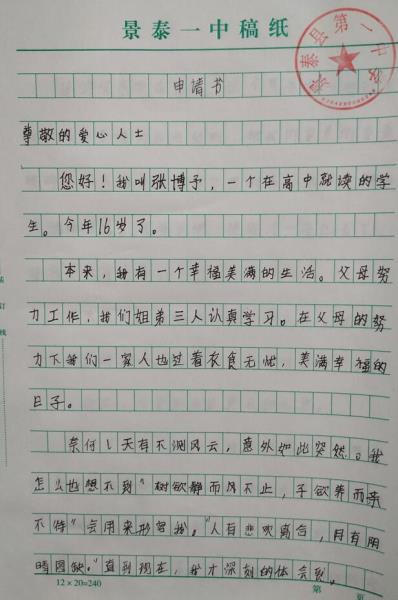 景泰一中稿纸
景泰县第一中学
申请书
尊敬的爱心人士
您好！我叫张博予，一个在高中就读的学
生。今年16岁了。
本来，我有一个幸福美满的生活。父母努
力工作，我们姐弟三人认真学习。在父母的努
力下我们一家人也过着衣食无忧，美满幸福的
日子。
奈何！天有不测风云，意外如此突然。我
怎么也想不到“树欲静而风不止，子欲养而亲
不待”会用来形容我。“人有悲欢离合，月有阴
晴圆缺。”直到现在，我才深刻的体会到
12×20=240
第 页
订
线